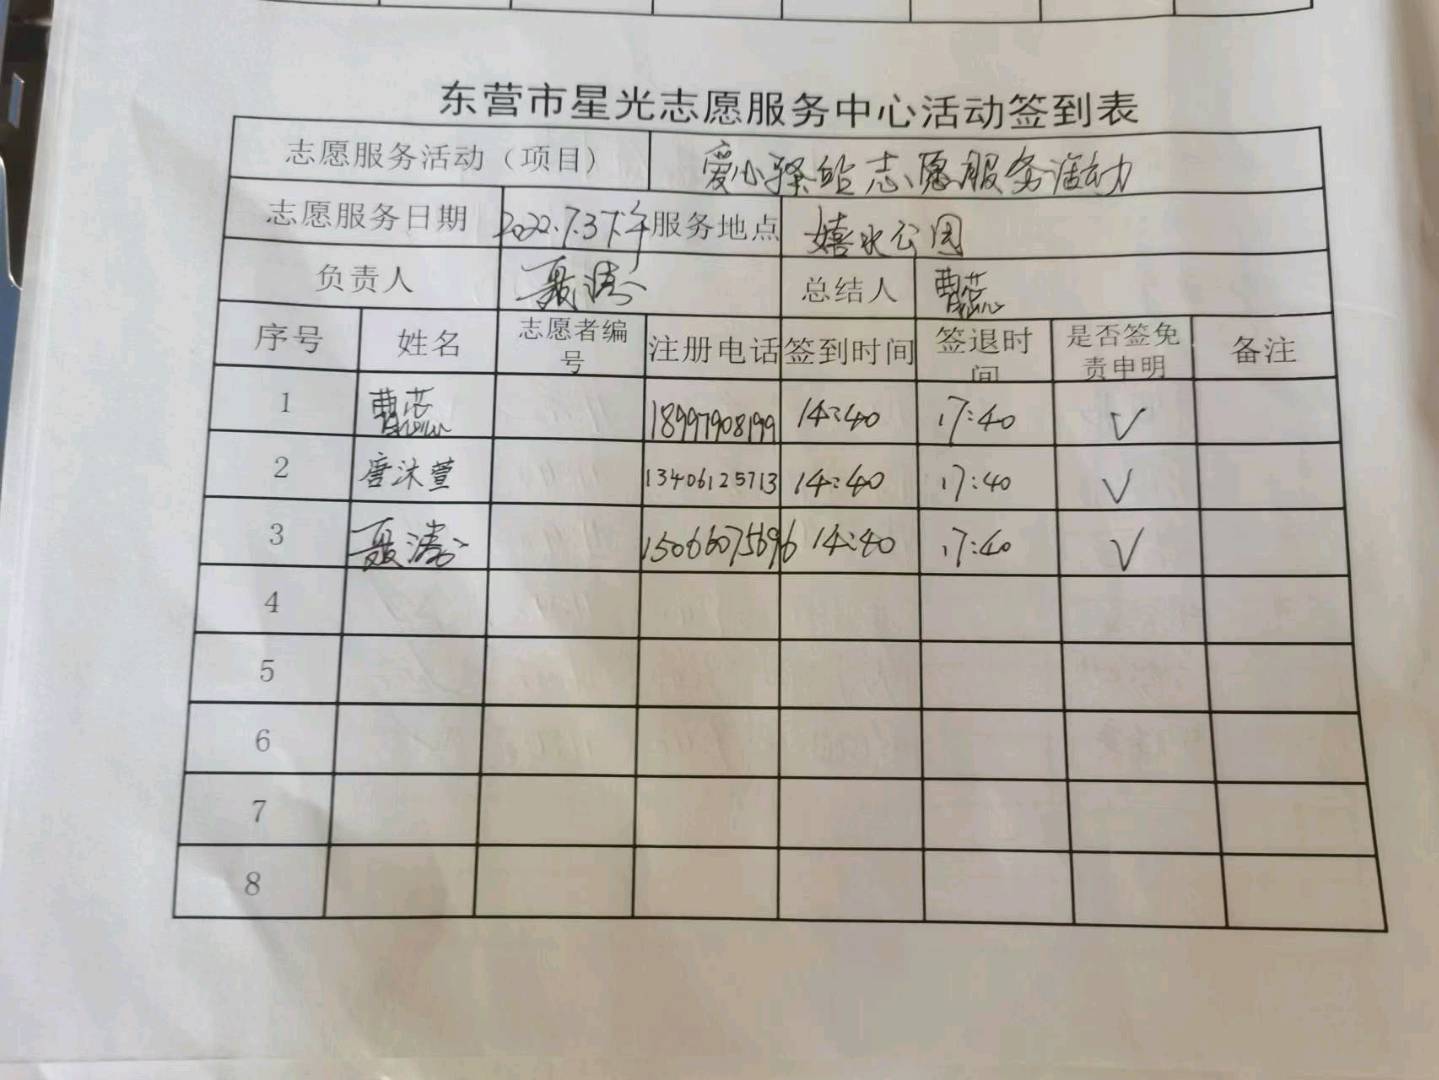 东营市星光志愿服务中心活动签到表
志愿服务活动（项目） 爱心驿站志愿服务活动
志愿服务日期 2022.7.3下午 服务地点 嬉水公园
负责人 聂涛 总结人 曹蕊
序号 姓名 志愿者编号 注册电话 签到时间 签退时间 是否签免责申明 备注
1 曹蕊 18997908199 14:40 17:40 √
2 唐沐萱 13406125713 14:40 17:40 √
3 聂涛 15066075696 14:40 17:40 √
4
5
6
7
8